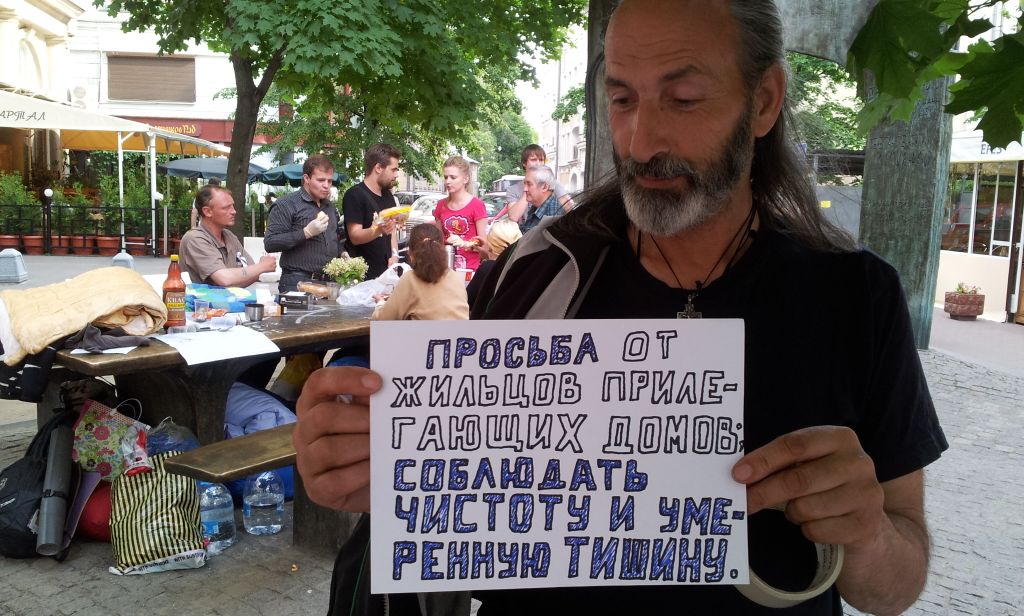 АРТАЛ
КВАС
ПРОСЬБА ОТ
ЖИЛЬЦОВ ПРИЛЕ-
ГАЮЩИХ ДОМОВ:
СОБЛЮДАТЬ
ЧИСТОТУ И УМЕ-
РЕННУЮ ТИШИНУ.